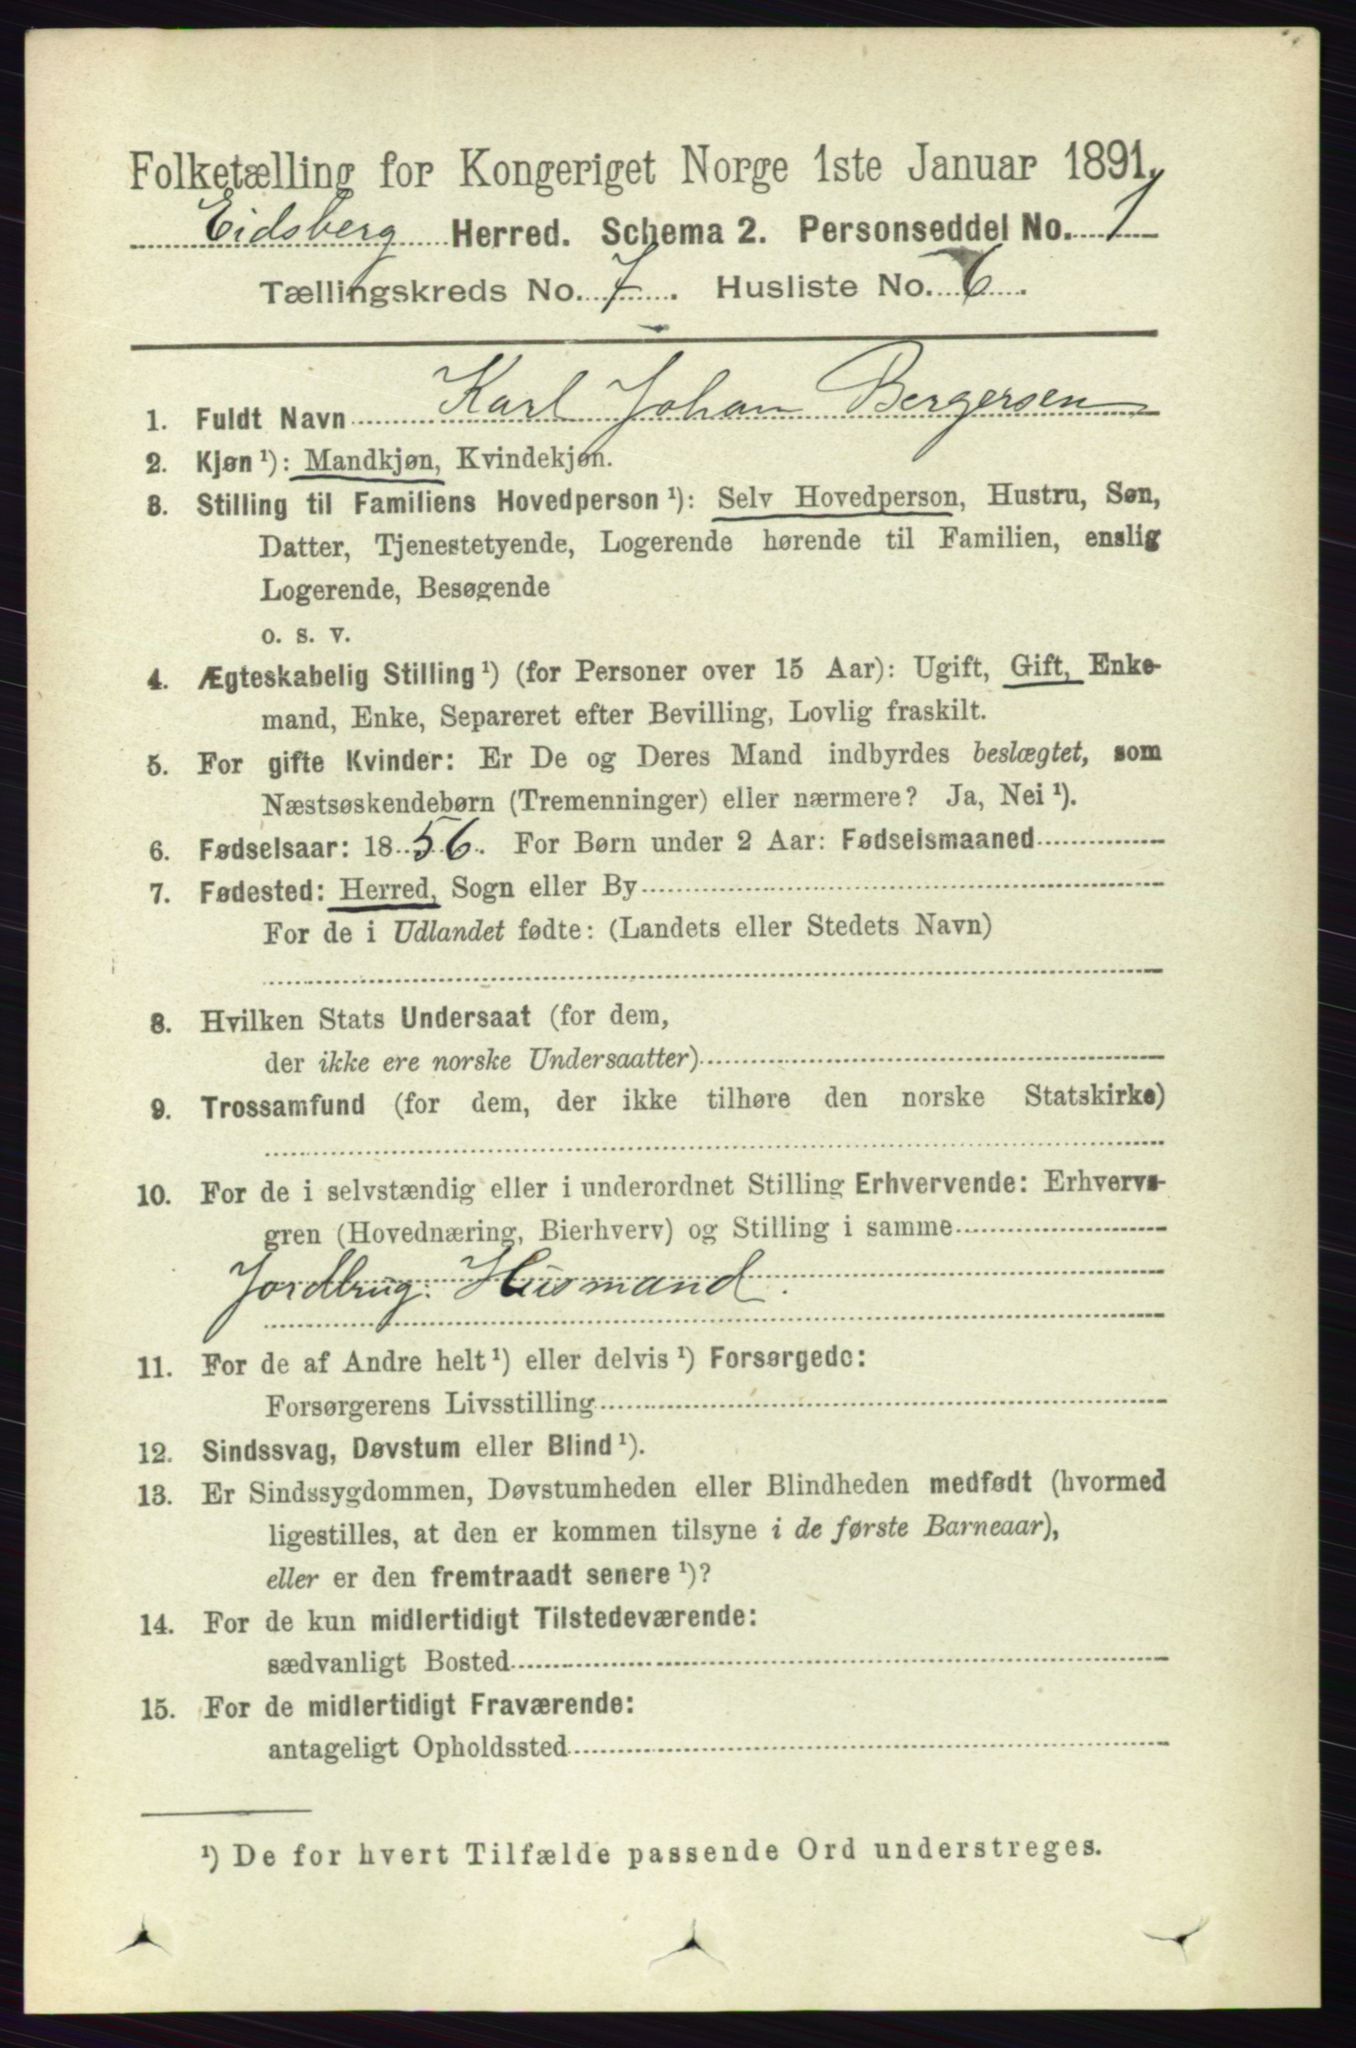 Folketælling for Kongeriget Norge 1ste Januar 1891.
Eidsberg Herred. Schema 2. Personseddel No. 1
Tællingskreds No. 7. Husliste No. 6.
1. Fuldt Navn Karl Johan Bergersen
2. Kjøn ¹): Mandkjøn, Kvindekjøn.
3. Stilling til Familiens Hovedperson ¹): Selv Hovedperson, Hustru, Søn,
Datter, Tjenestetyende, Logerende hørende til Familien, enslig
Logerende, Besøgende
o. s. v.
4. Ægteskabelig Stilling ¹) (for Personer over 15 Aar): Ugift, Gift, Enke-
mand, Enke, Separeret efter Bevilling, Lovlig fraskilt.
5. For gifte Kvinder: Er De og Deres Mand indbyrdes beslægtet, som
Næstsøskendebørn (Tremenninger) eller nærmere? Ja, Nei ¹).
6. Fødselsaar: 1856. For Børn under 2 Aar: Fødselsmaaned
7. Fødested: Herred, Sogn eller By
For de i Udlandet fødte: (Landets eller Stedets Navn)
8. Hvilken Stats Undersaat (for dem,
der ikke ere norske Undersaatter)
9. Trossamfund (for dem, der ikke tilhøre den norske Statskirke)
10. For de i selvstændig eller i underordnet Stilling Erhvervende: Erhvervs-
gren (Hovednæring, Bierhverv) og Stilling i samme
Jordbrug. Husmand.
11. For de af Andre helt ¹) eller delvis ¹) Forsørgede:
Forsørgerens Livsstilling
12. Sindssvag, Døvstum eller Blind ¹).
13. Er Sindssygdommen, Døvstumheden eller Blindheden medfødt (hvormed
ligestilles, at den er kommen tilsyne i de første Barneaar),
eller er den fremtraadt senere ¹)?
14. For de kun midlertidigt Tilstedeværende:
sædvanligt Bosted
15. For de midlertidigt Fraværende:
antageligt Opholdssted
¹) De for hvert Tilfælde passende Ord understreges.